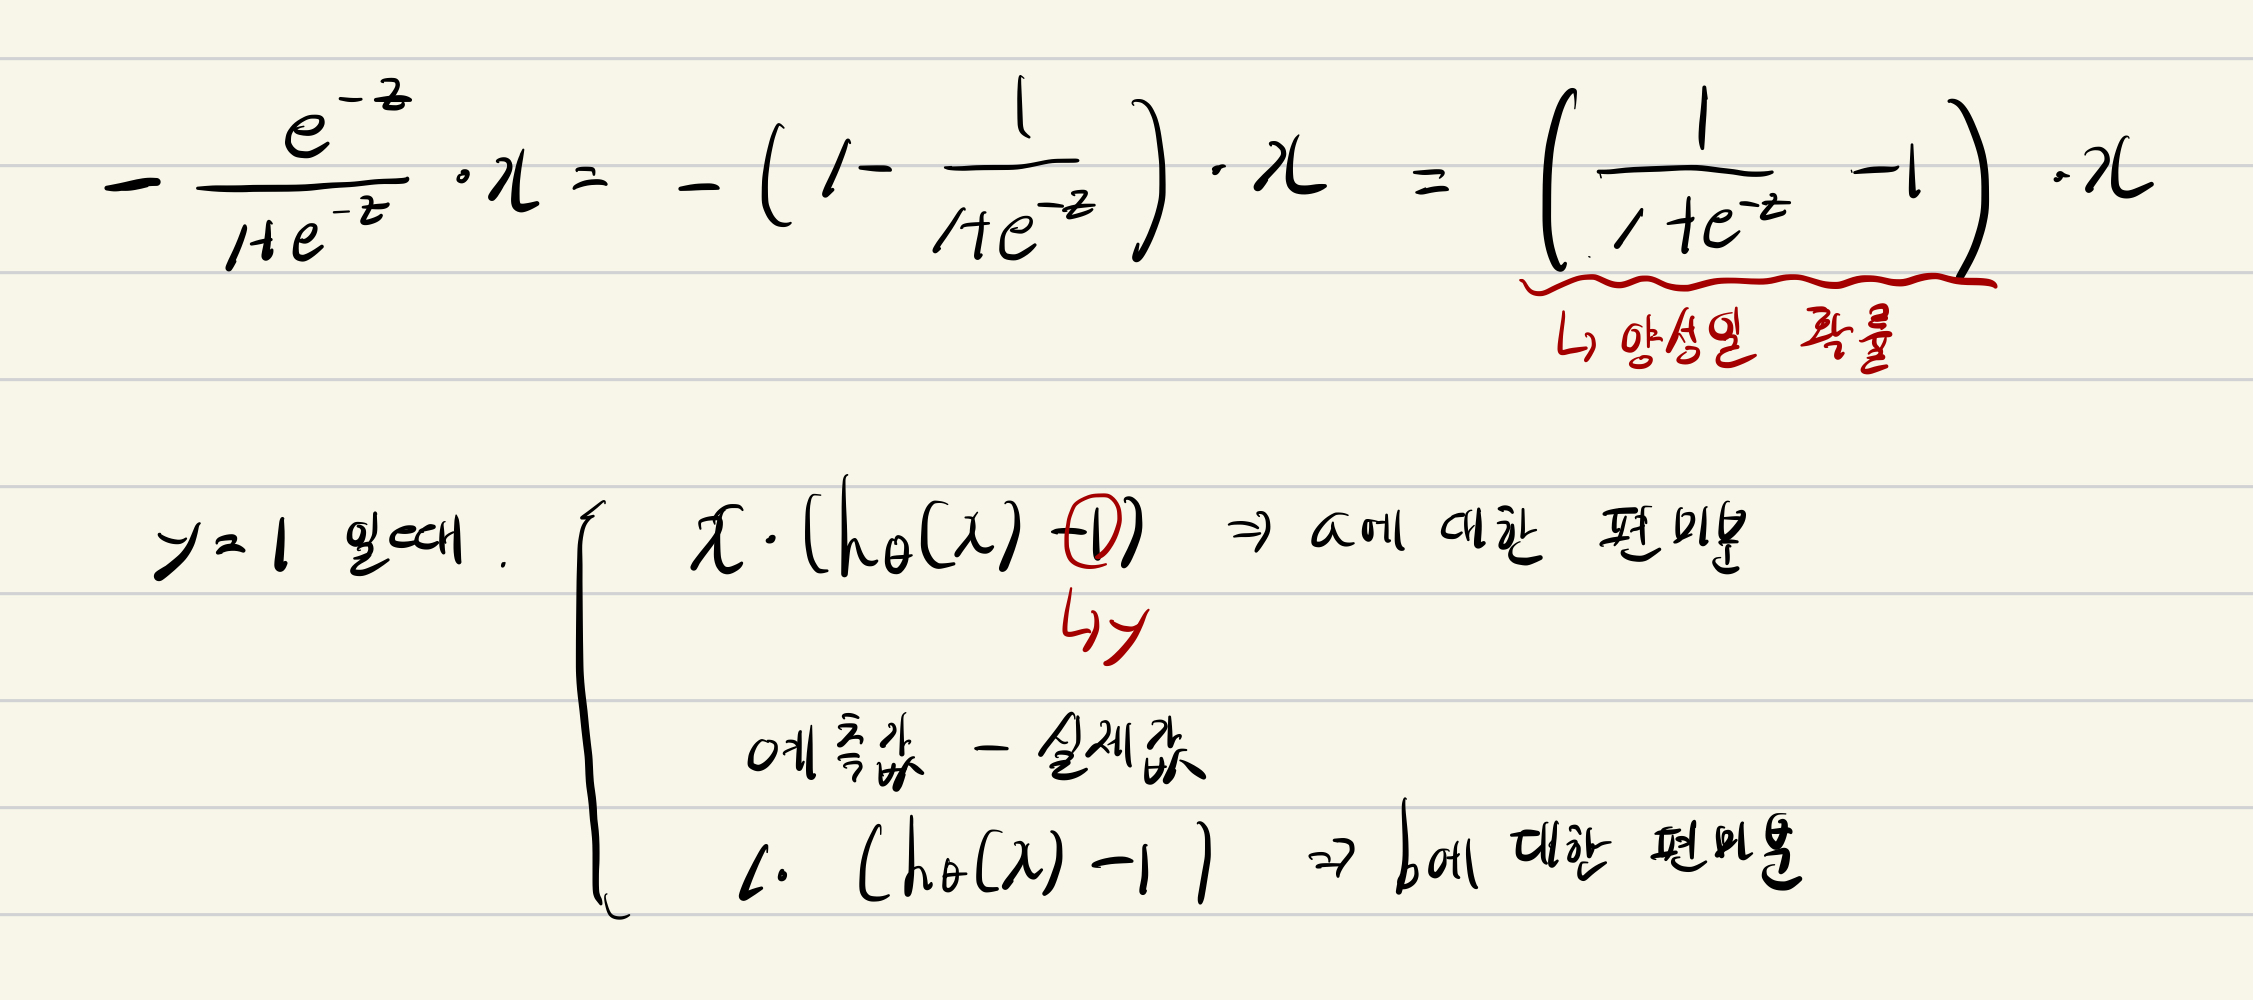 - e^{-z} / 1+e^{-z} · x = - ( 1 - 1 / 1+e^{-z} ) · x = ( 1 / 1+e^{-z} - 1 ) · x
↳ 양성일 확률
y=1 일때. x · (h_θ(x) - 1) ⇒ a에 대한 편미분
↳ y
예측값 - 실제값
1 · (h_θ(x) - 1) ⇒ b에 대한 편미분